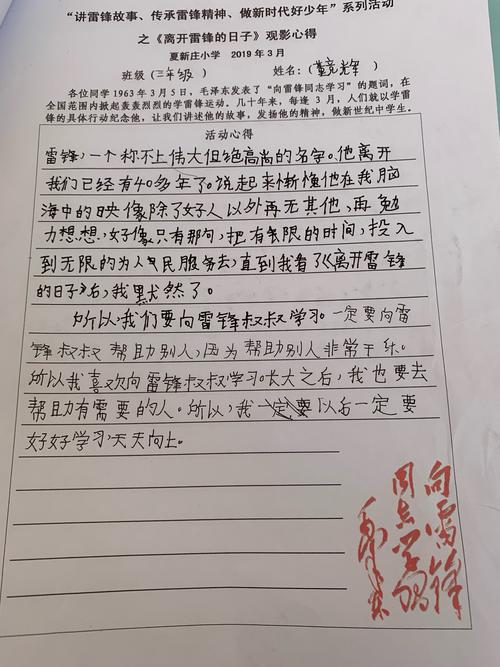 “讲雷锋故事、传承雷锋精神、做新时代好少年”系列活动
之《离开雷锋的日子》观影心得
夏新庄小学 2019年3月
班级(三年级) 姓名:(董竞辉)
各位同学1963年3月5日，毛泽东发表了“向雷锋同志学习”的题词，在
全国范围内掀起轰轰烈烈的学雷锋运动。几十年来，每逢3月，人们就以学雷
锋的具体行动纪念他，让我们讲述他的故事，发扬他的精神，做新世纪中学生。
活动心得
雷锋,一个称不上伟大但绝高尚的名字。他离开
我们已经有40多年了。说起来惭愧他在我脑
海中的映像除了好人以外再无其他,再勉
力想想,好像只有那句,把有限的时间,投入
到无限的为人民服务去,直到我看了《离开雷锋
的日子》后,我默然了。
所以,我们要向雷锋叔叔学习。一定要向雷
锋叔叔帮助别人,因为帮助别人非常干乐。
所以我喜欢向雷锋叔叔学习。长大之后,我也要去
帮助有需要的人。所以,我一定要以后一定要
好好学习,天天向上。
向雷锋
同志学习
毛泽东